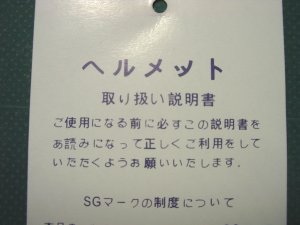 ヘルメット
取り扱い説明書
ご使用になる前に必ずこの説明書を
お読みになって正しくご利用をして
いただくようお願いいたします.
SGマークの制度について